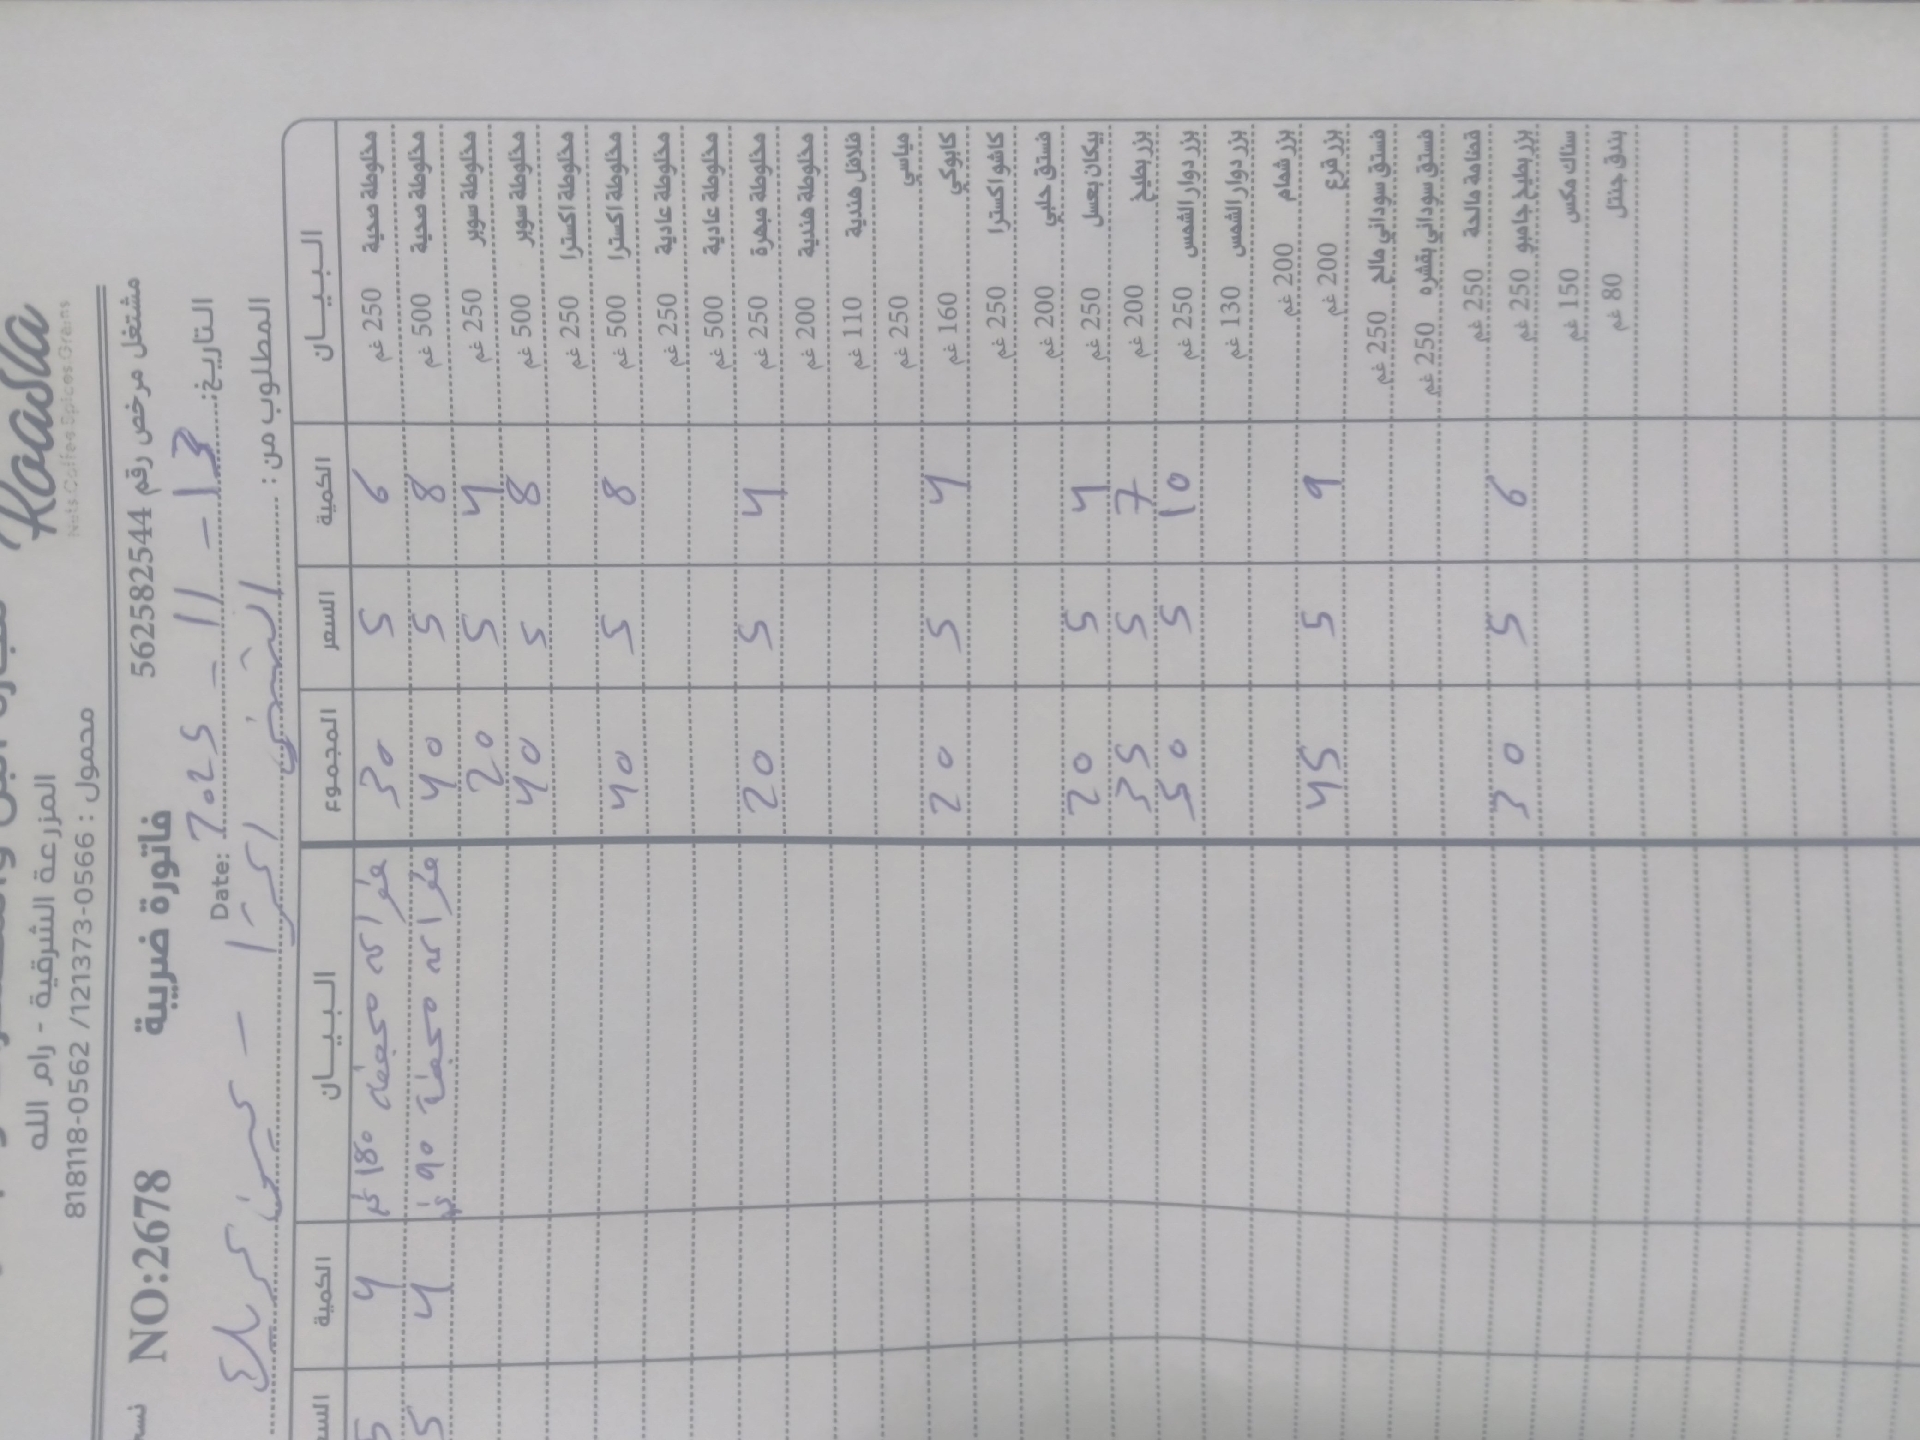 Roasta
Nuts.Coffee.Spices.Grains
المزرعة الشرقية - رام الله
محمول : 0566-121373/ 0562-818118
مشتغل مرخص رقم 562582544
فاتورة ضريبة
NO:2678
التاريخ: 13 - 11 - 2025 Date:
المطلوب من :
البيـــان الكمية السعر المجموع البيـــان الكمية
مخلوطة صحية 250 غم 6 5 30 180 4 5
مخلوطة صحية 500 غم 8 5 40 90 4 5
مخلوطة سوبر 250 غم 4 5 20
مخلوطة سوبر 500 غم 8 5 40
مخلوطة اكسترا 250 غم
مخلوطة اكسترا 500 غم 8 5 40
مخلوطة عادية 250 غم
مخلوطة عادية 500 غم
مخلوطة مبهرة 250 غم 4 5 20
مخلوطة هندية 200 غم
فلافل هندية 110 غم
مياسي 250 غم
كابوكي 160 غم 4 5 20
كاشو اكسترا 250 غم
فستق حلبي 200 غم
بيكان بعسل 250 غم 4 5 20
بزر بطيخ 200 غم 7 5 35
بزر دوار الشمس 250 غم 10 5 50
بزر دوار الشمس 130 غم
بزر شمام 200 غم
بزر قرع 200 غم 9 5 45
فستق سوداني مالح 250 غم
فستق سوداني بقشره 250 غم
قضامة مالحة 250 غم
بزر بطيخ جامبو 250 غم 6 5 30
سناك مكس 150 غم
بندق جنتل 80 غم